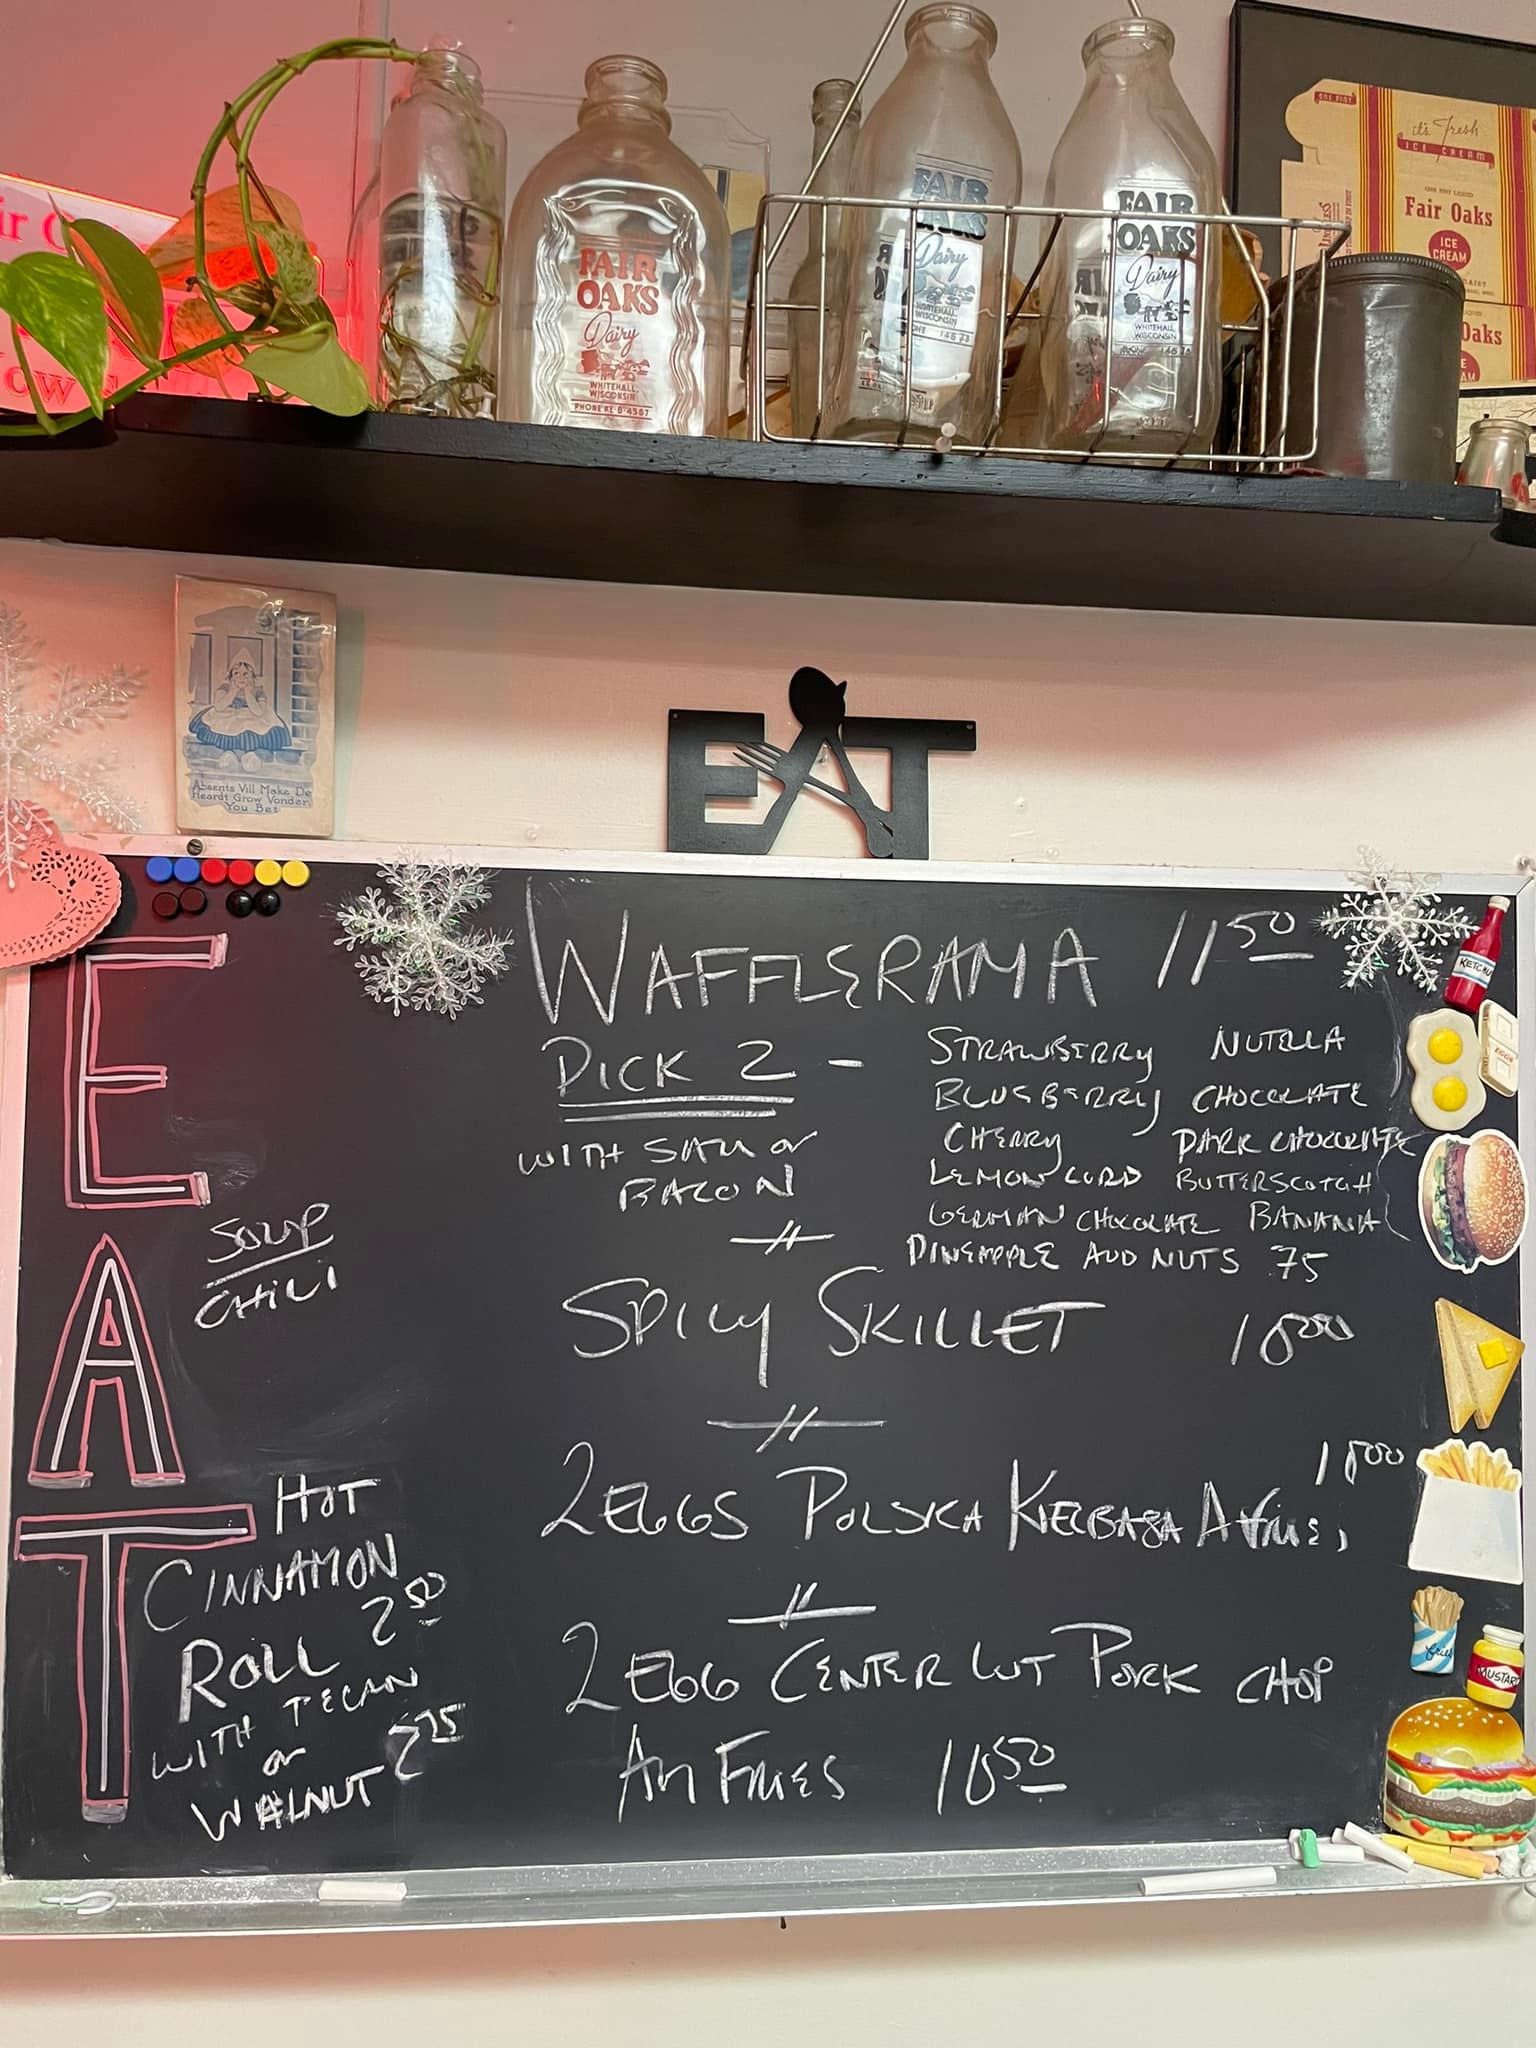 FAIR
OAKS
Dairy
WHITEHALL,
WISCONSIN
PHONE KL 8-4587
FAIR
OAKS
Dairy
WHITEHALL
WISCONSIN
FAIR
OAKS
Dairy
WHITEHALL
WISCONSIN
ONE PINT
it's Fresh
ICE CREAM
Fair Oaks
ICE
CREAM
Oaks
Absents Vill Make De
Heardt Grow Vonder,
You Bet
EAT
EAT
WAFFLERAMA 11 50
PICK 2 -
WITH SAU OR
BACON
STRAWBERRY NUTELLA
BLUEBERRY CHOCOLATE
CHERRY DARK CHOCOLATE
LEMON CURD BUTTERSCOTCH
GERMAN CHOCOLATE BANANA
PINEAPPLE ADD NUTS 75
SPICY SKILLET 10 00
2 EGGS POLSKA KIELBASA A FRIES 10 00
2 EGG CENTER CUT PORK CHOP
AM FRIES 10 50
SOUP
CHILI
HOT
CINNAMON
ROLL 2 50
WITH PECAN
OR
WALNUT 2 75
KETCHUP
EGGS
fries
MUSTARD